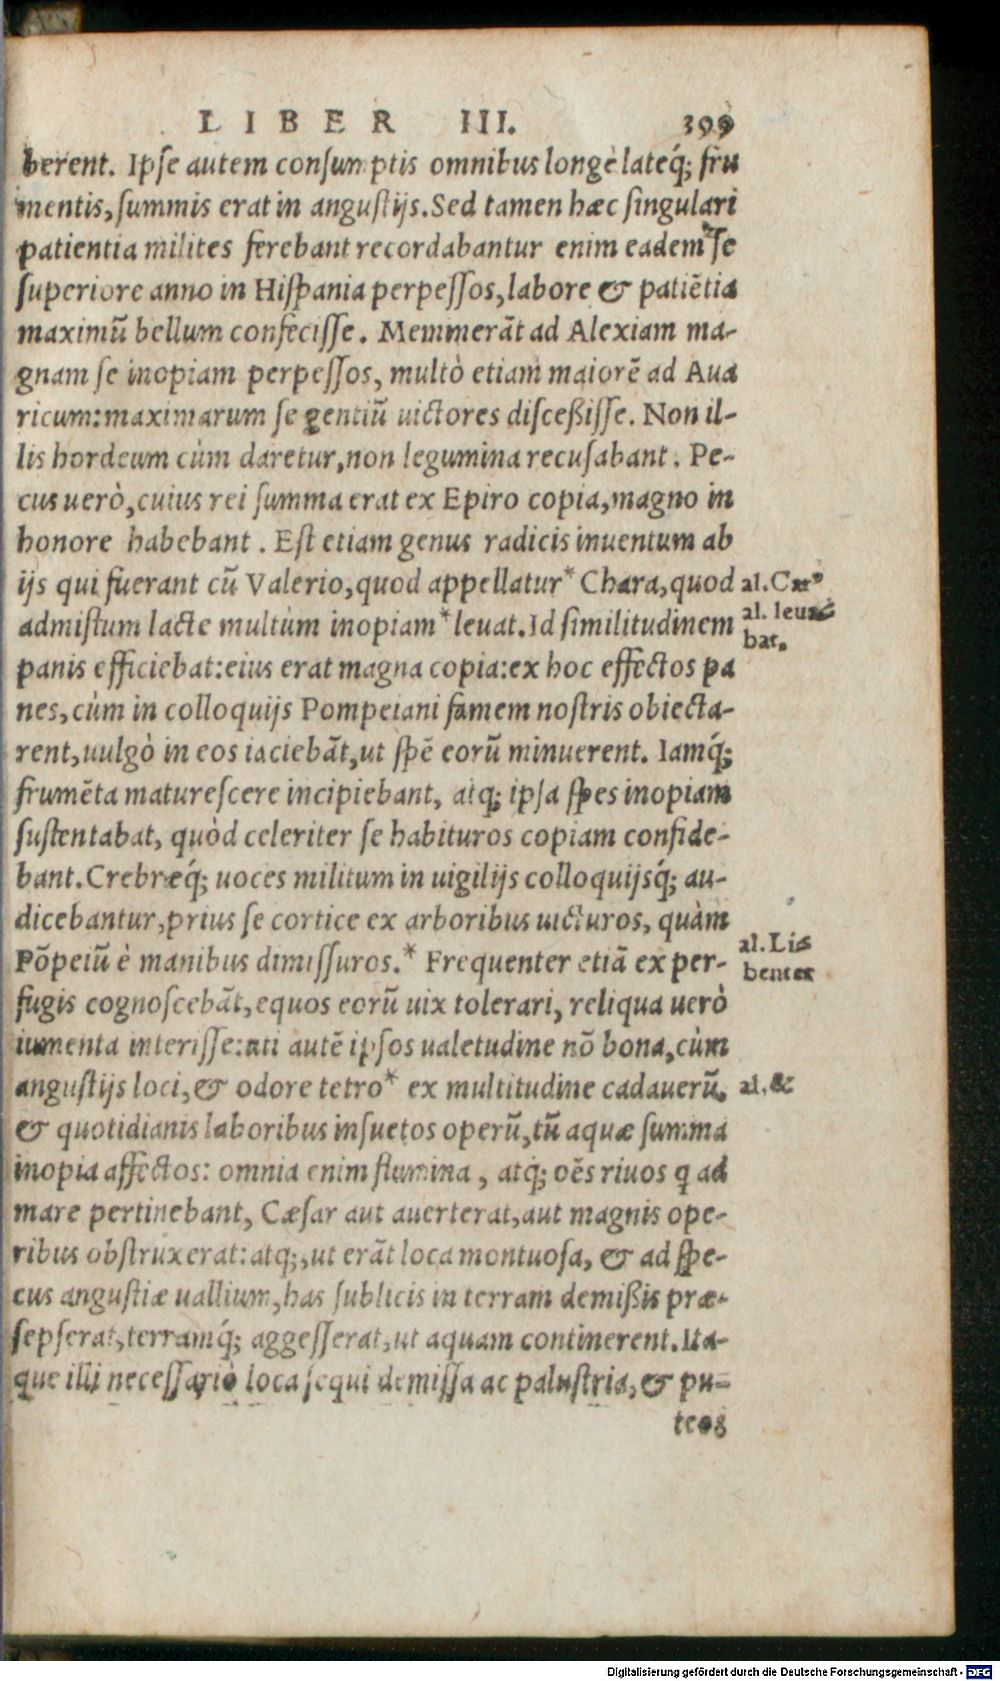 LIBER III. 399
berent. Ipse autem consumptis omnibus longè lateq́; fru
mentis, summis erat in angustijs. Sed tamen hæc singulari
patientia milites ferebant recordabantur enim eadem se
superiore anno in Hispania perpessos, labore & patiẽtia
maximũ bellum confecisse. Memmerãt ad Alexiam ma-
gnam se inopiam perpessos, multò etiam maiorẽ ad Aua
ricum: maximarum se gentiũ uictores disceßisse. Non il-
lis hordeum cùm daretur, non legumina recusabant. Pe-
cus uerò, cuius rei summa erat ex Epiro copia, magno in
honore habebant. Est etiam genus radicis inuentum ab
ijs qui fuerant cũ Valerio, quod appellatur* Chara, quod
al. Car
admistum lacte multùm inopiam* leuat. Id similitudinem
al. leua-
bat.
panis efficiebat: eius erat magna copia: ex hoc effectos pa
nes, cùm in colloquijs Pompeiani famem nostris obiecta-
rent, uulgò in eos iaciebãt, ut spẽ eorũ minuerent. Iamq́;
frumẽta maturescere incipiebant, atq; ipsa spes inopiam
sustentabat, quòd celeriter se habituros copiam confide-
bant. Crebræq́; uoces militum in uigilijs colloquijsq́; au-
dicebantur, prius se cortice ex arboribus uicturos, quàm
Põpeiũ è manibus dimissuros.* Frequenter etiã ex per-
al. Li-
benter
fugis cognoscebãt, equos eorũ uix tolerari, reliqua uerò
iumenta interisse: uti autẽ ipsos ualetudine nõ bona, cùm
angustijs loci, & odore tetro* ex multitudine cadauerũ,
al. &
& quotidianis laboribus insuetos operũ, tũ aquæ summa
inopia affectos: omnia enim flumina, atq; oẽs riuos q ad
mare pertinebant, Cæsar aut auerterat, aut magnis ope-
ribus obstruxerat: atq;, ut erãt loca montuosa, & ad spe-
cus angustiæ uallium, has sublicis in terram demißis præ-
sepserat, terramq́; aggesserat, ut aquam continerent. Ita-
que illi necessariò loca sequi demissa ac palustria, & pu-
teos
Digitalisierung gefördert durch die Deutsche Forschungsgemeinschaft - DFG